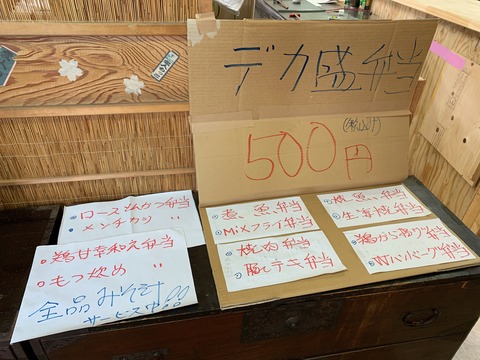 デカ盛弁当
(税込)
500円
ロースかつ弁当
メンチカツ 〃
鶏甘辛和え弁当
もつ炒め 〃
全品みそ汁
サービス中!!
煮魚弁当
MiXフライ弁当
焼肉弁当
豚テキ弁当
焼魚弁当
生姜焼弁当
鶏から揚げ弁当
Wハンバーグ弁当